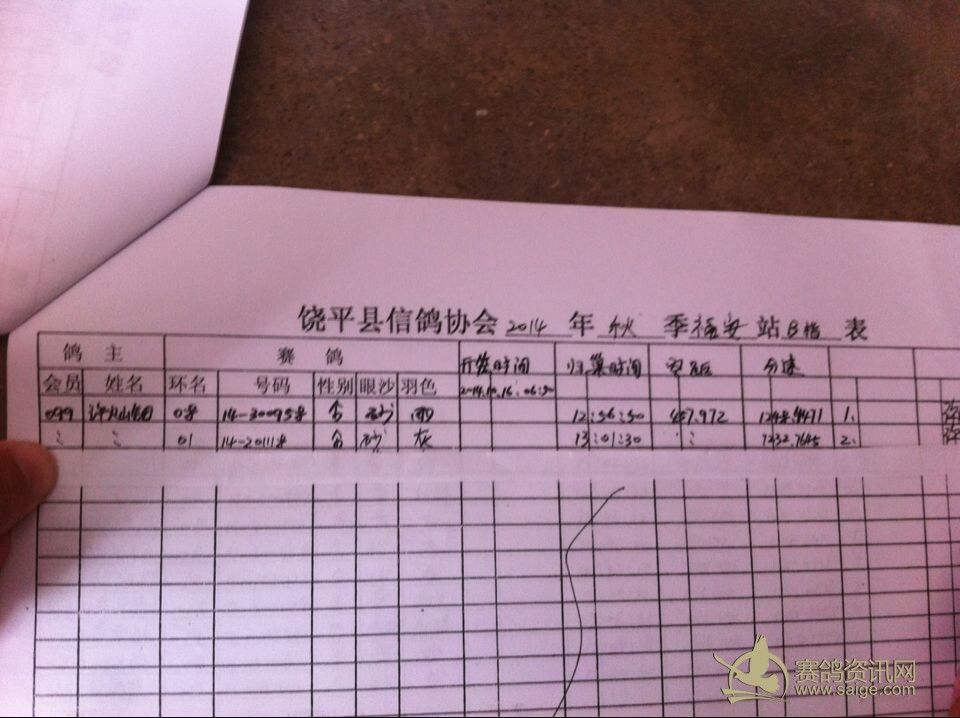 饶平县信鸽协会 2014 年 秋 季 福安 站 B指 表
鸽主 赛鸽 开笼时间 归巢时间 空距 分速
会员 姓名 环名 号码 性别 眼沙 羽色 2014.10.16. 06:50
099 08 14-300958 砂 雨 12:56:50 457.972 1248.4471 1.
〃 〃 01 14-201118 砂 灰 13:01:30 〃 1232.7645 2.
赛鸽资讯网
www.saige.com